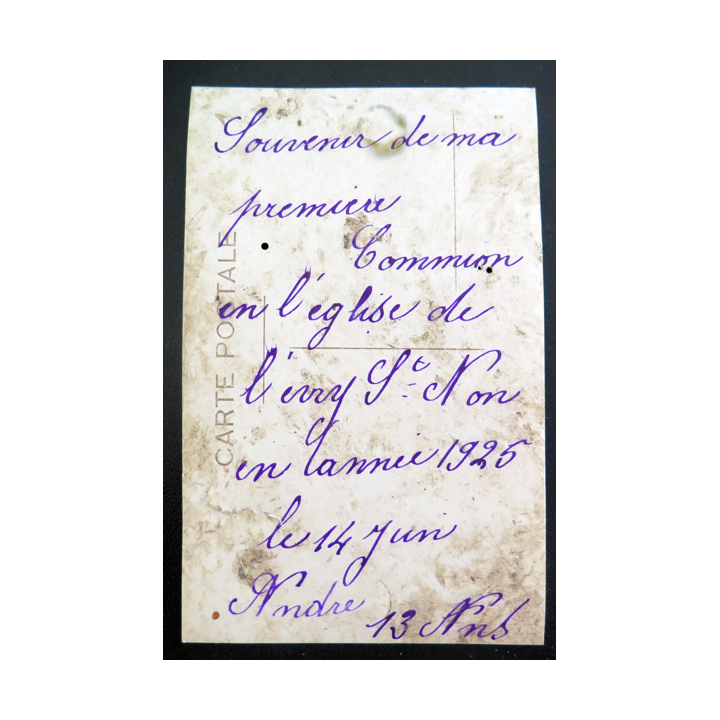 Souvenir de ma
premiere
Commuion
en l'église de
l'évry St Non
en lannée 1925
le 14 Juin
Andre
13 Ans
CARTE POSTALE